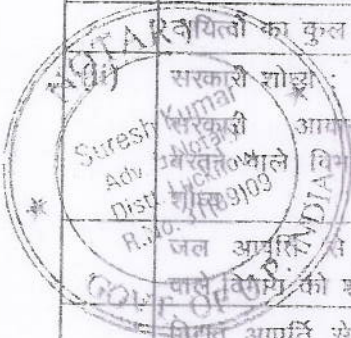 दायित्वों का कुल
(ii) सरकारी शोध्य :
सरकारी आवास
बरतने वाले विभाग
शोध्य
जल आपूर्ति से
वाले विभाग को
विद्युत आपूर्ति से
NOTARY
Suresh Kumar
Adv. Notary
Distt. Lucknow
R.No. 31(69)09
GOVT. OF U.P. INDIA